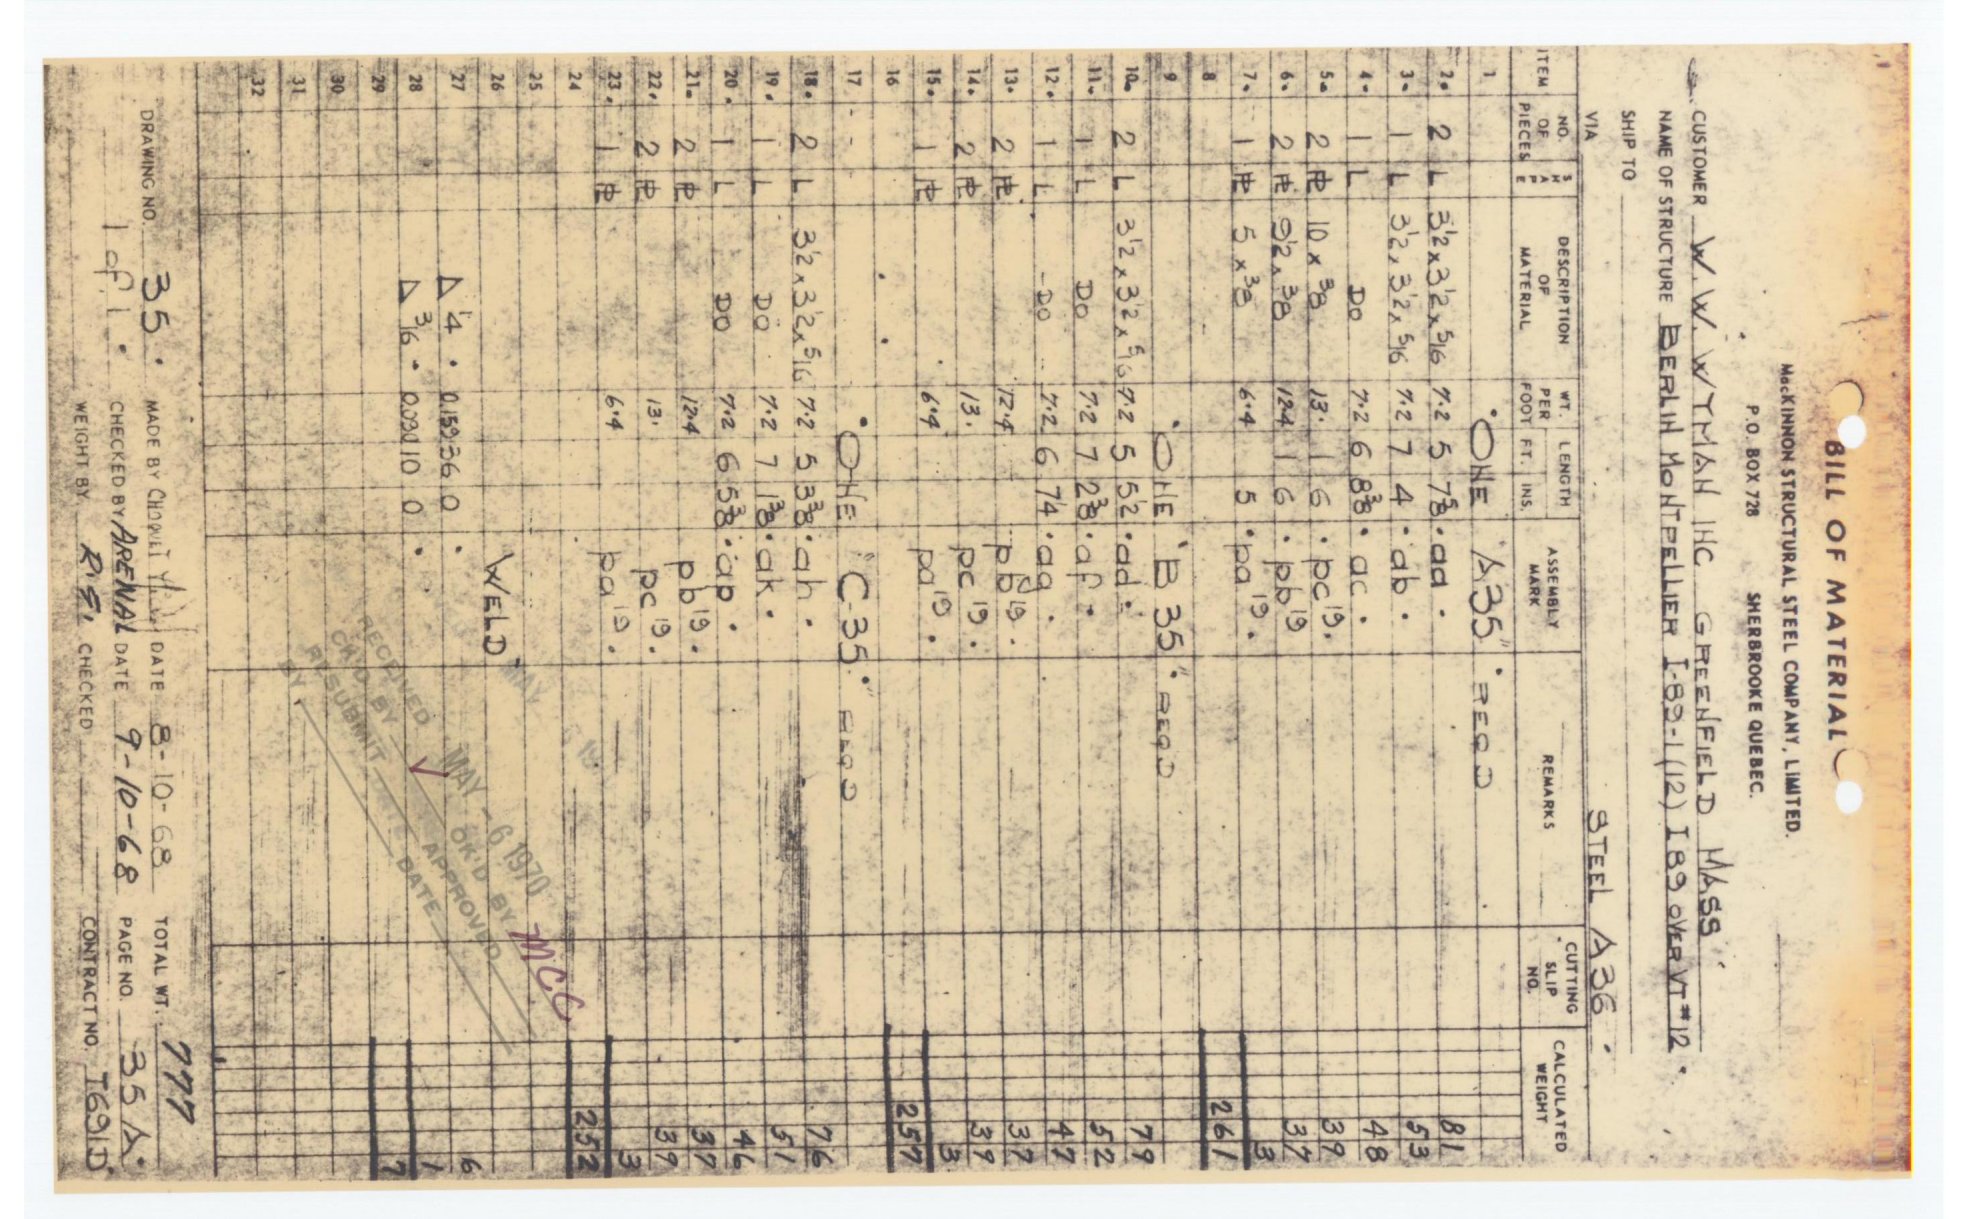 BILL OF MATERIAL
MacKINNON STRUCTURAL STEEL COMPANY, LIMITED.
P.O. BOX 728 SHERBROOKE QUEBEC.
CUSTOMER W. W. WYMAN INC GREENFIELD MASS
NAME OF STRUCTURE BERLIN MONTPELLIER I-89-1(12) I89 OVER VT #12.
SHIP TO
VIA STEEL A36.
ITEM NO. OF PIECES SHAPE DESCRIPTION OF MATERIAL WT. PER FOOT LENGTH FT. INS. ASSEMBLY MARK REMARKS CUTTING SLIP NO. CALCULATED WEIGHT
1 ONE "A35". REQD
2. 2 L 3½ x 3½ x 5/16 7.2 5 7⅝. aa. 81
3. 1 L 3½ x 3½ x 5/16 7.2 7 4. ab. 53
4. 1 L DO 7.2 6 8⅜. ac. 48
5. 2 PL 10 x ⅜ 13. 1 6. pc19. 39
6. 2 PL 9½ x ⅜ 12.4 1 6. pb19 37
7. 1 PL 5 x ⅜ 6.4 5. pa19. 3
8 261
9 ONE "B35". REQD
10. 2 L 3½ x 3½ x 5/16 7.2 5 5½. ad. 79
11. 1 L DO 7.2 7 2⅜. af. 52
12. 1 L DO 7.2 6 7¼. ag. 47
13. 2 PL 12.4 pb19. 37
14. 2 PL 13. pc19. 39
15. 1 PL 6.4 pa19. 3
16 257
17 ONE "C-35". REQD
18. 2 L 3½ x 3½ x 5/16 7.2 5 3⅜. ah. 76
19. 1 L DO 7.2 7 1⅜. ak. 51
20. 1 L DO 7.2 6 5⅜. ap. 46
21. 2 PL 12.4 pb19. 37
22. 2 PL 13. pc19. 39
23. 1 PL 6.4 pa19. 3
24 252
25
26 WELD
27 ⊿ ¼. 0.159 36 0. 6
28 ⊿ 3/16. 0.090 10 0. 1
29 7
30
31
32
RECEIVED MAY -6 1970
CK'D BY OK'D BY MCC
RESUBMIT APPROVED
BY DATE
DRAWING NO. 35. MADE BY DATE 8-10-68 TOTAL WT. 777
1 of 1. CHECKED BY ARENAL DATE 9-10-68 PAGE NO. 35A.
WEIGHT BY CHECKED CONTRACT NO. T691D.